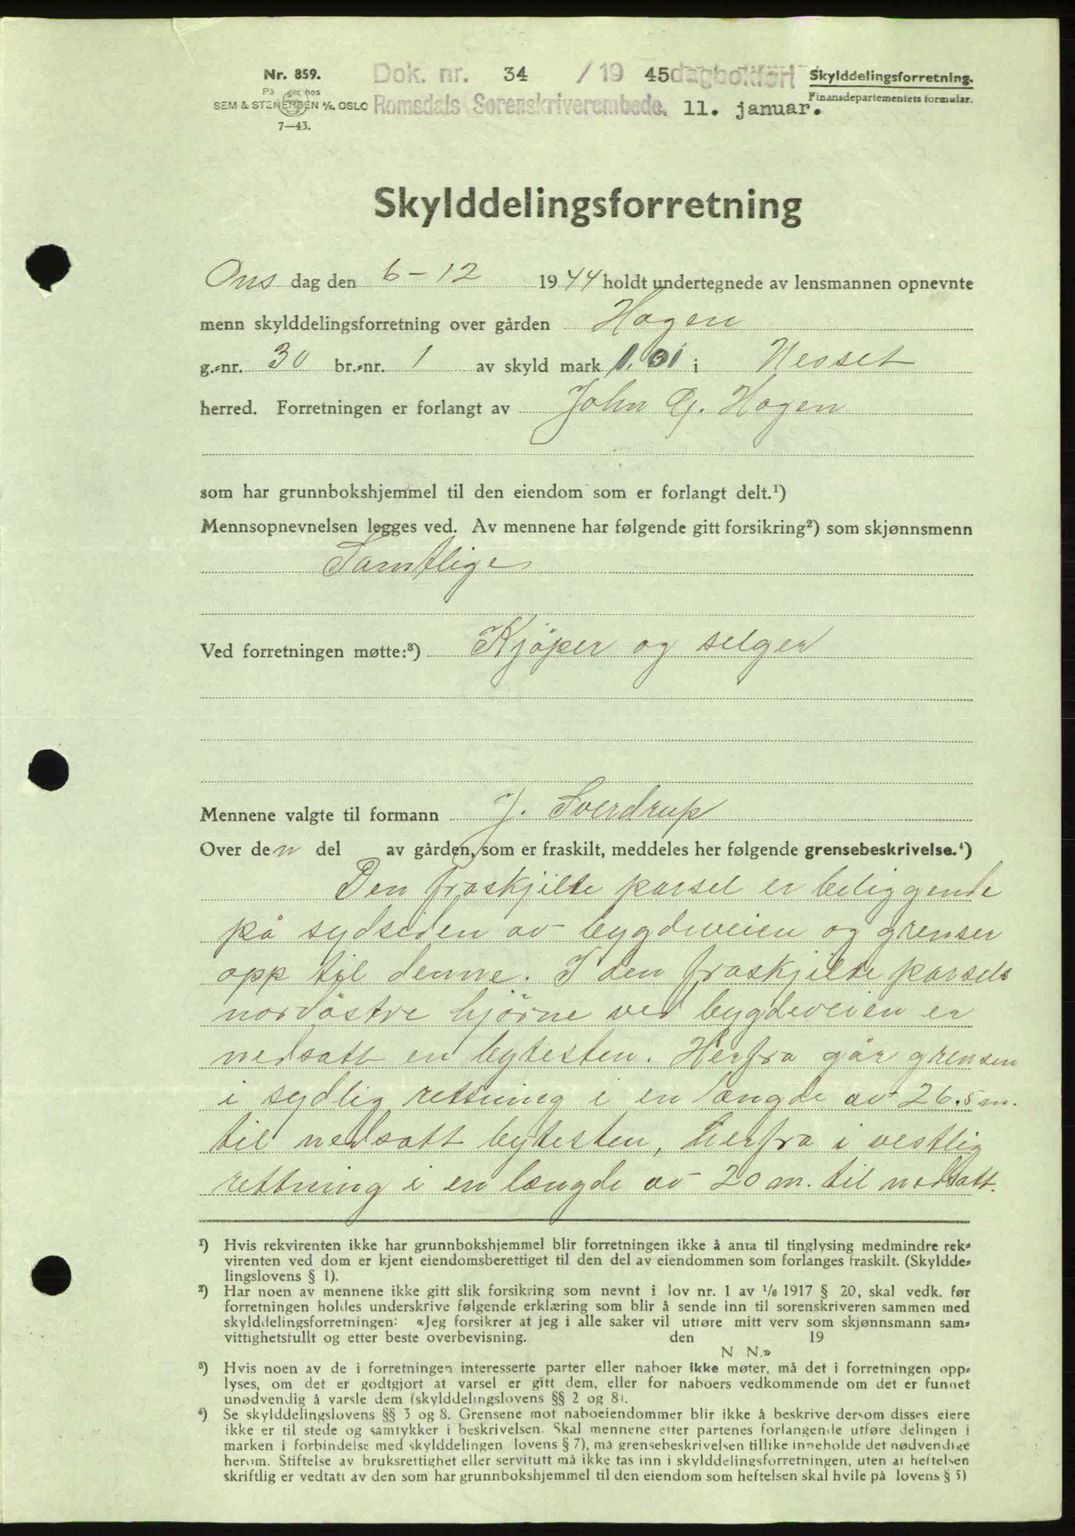 Nr. 859.
På lager hos
SEM & STENERSEN A/S, OSLO
7—43.
Dok. nr. 34 /19 45 dagbokført
Romsdals Sorenskriverembede, 11. januar.
Skylddelingsforretning.
Finansdepartementets formular.
Skylddelingsforretning
Ons dag den 6-12 1944 holdt undertegnede av lensmannen opnevnte
menn skylddelingsforretning over gården Hagen
g.-nr. 30 br.-nr. 1 av skyld mark 1.01 i Nesset
herred. Forretningen er forlangt av John G. Hagen
som har grunnbokshjemmel til den eiendom som er forlangt delt.¹)
Mennsopnevnelsen legges ved. Av mennene har følgende gitt forsikring²) som skjønnsmenn
Samtlige
Ved forretningen møtte:³) Kjöper og selger
Mennene valgte til formann J. Sverdrup
Over den del av gården, som er fraskilt, meddeles her følgende grensebeskrivelse.⁴)
Den fraskjilte parsel er beliggende
på sydsiden av bygdeveien og grenser
opp til denne. I den fraskjilte parsels
nordöstre hjörne ved bygdeveien er
nedsatt en bytesten. Herfra går grensen
i sydlig rettning i en længde av 26.5 m.
til nedsatt bytesten, herfra i vestlig
rettning i en længde av 20 m. til nedsatt.
¹) Hvis rekvirenten ikke har grunnbokshjemmel blir forretningen ikke å anta til tinglysing medmindre rek-
virenten ved dom er kjent eiendomsberettiget til den del av eiendommen som forlanges fraskilt. (Skyldde-
lingslovens § 1).
²) Har noen av mennene ikke gitt slik forsikring som nevnt i lov nr. 1 av 1/6 1917 § 20, skal vedk. før
forretningen holdes underskrive følgende erklæring som blir å sende inn til sorenskriveren sammen med
skylddelingsforretningen: «Jeg forsikrer at jeg i alle saker vil utføre mitt verv som skjønnsmann sam-
vittighetsfullt og etter beste overbevisning. den 19
N N.»
³) Hvis noen av de i forretningen interesserte parter eller naboer ikke møter, må det i forretningen opp-
lyses, om det er godtgjort at varsel er gitt dem, eller for naboers vedkommende om det er funnet
unødvendig å varsle dem (skylddelingslovens §§ 2 og 8).
⁴) Se skylddelingslovens §§ 3 og 8. Grensene mot naboeiendommer blir ikke å beskrive dersom disses eiere
ikke er til stede og samtykker i beskrivelsen. Skal mennene etter partenes forlangende utføre delingen i
marken i forbindelse med skylddelingen lovens § 7), må grensebeskrivelsen tillike inneholde det nødvendige
herom. Stiftelse av bruksrettighet eller servitutt må ikke tas inn i skylddelingsforretningen, uten at heftelsen
skriftlig er vedtatt av den som har grunnbokshjemmel til den eiendom som heftelsen skal hvile på lovens § 5)